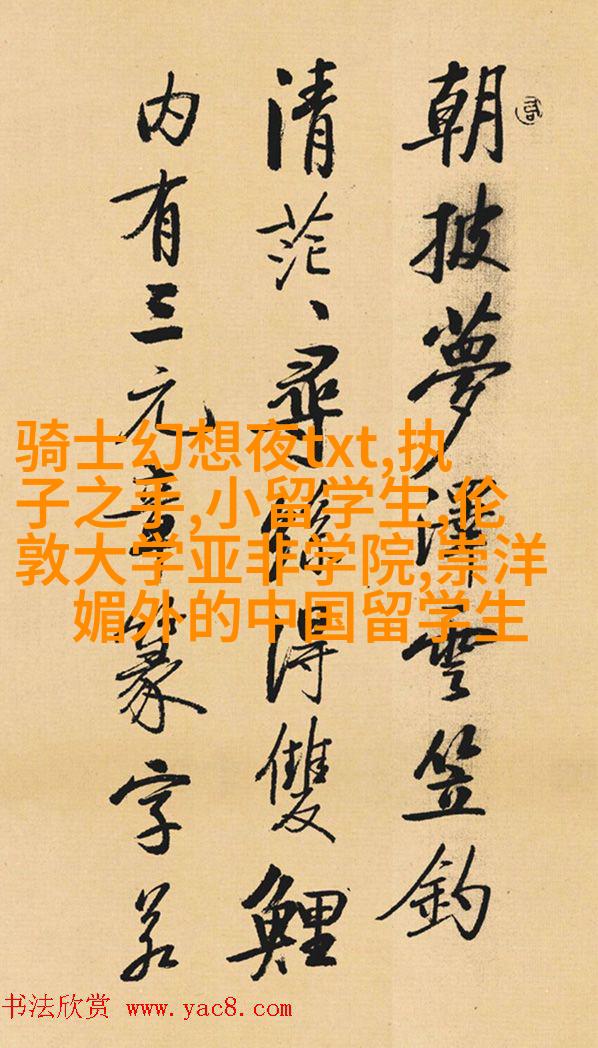 朝披夢澤雲笠釣
清茫〻尋絲得雙鯉
内有三元章篆字若
骑士幻想夜txt,执
子之手,小留学生,伦
敦大学亚非学院,崇洋
媚外的中国留学生
书法欣赏 www.yac8.com